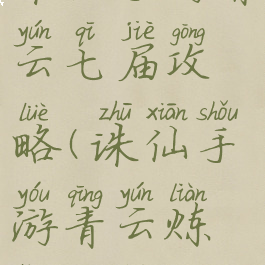 yún qī jiè gōng
云七届攻
lüè zhū xiān shǒu
略(诛仙手
yóu qīng yún liàn
游青云炼